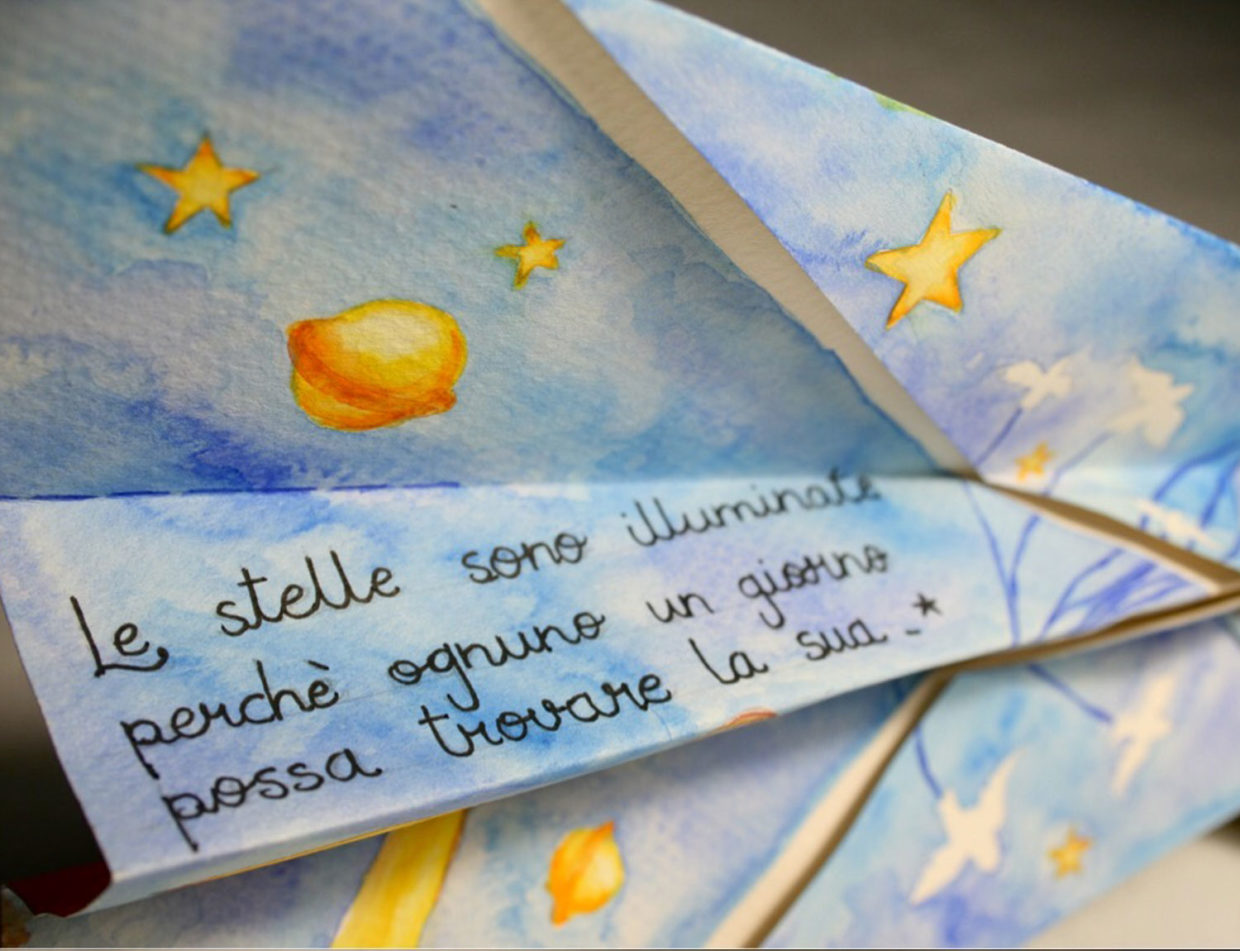 Le stelle sono illuminate
perchè ognuno un giorno
possa trovare la sua -*